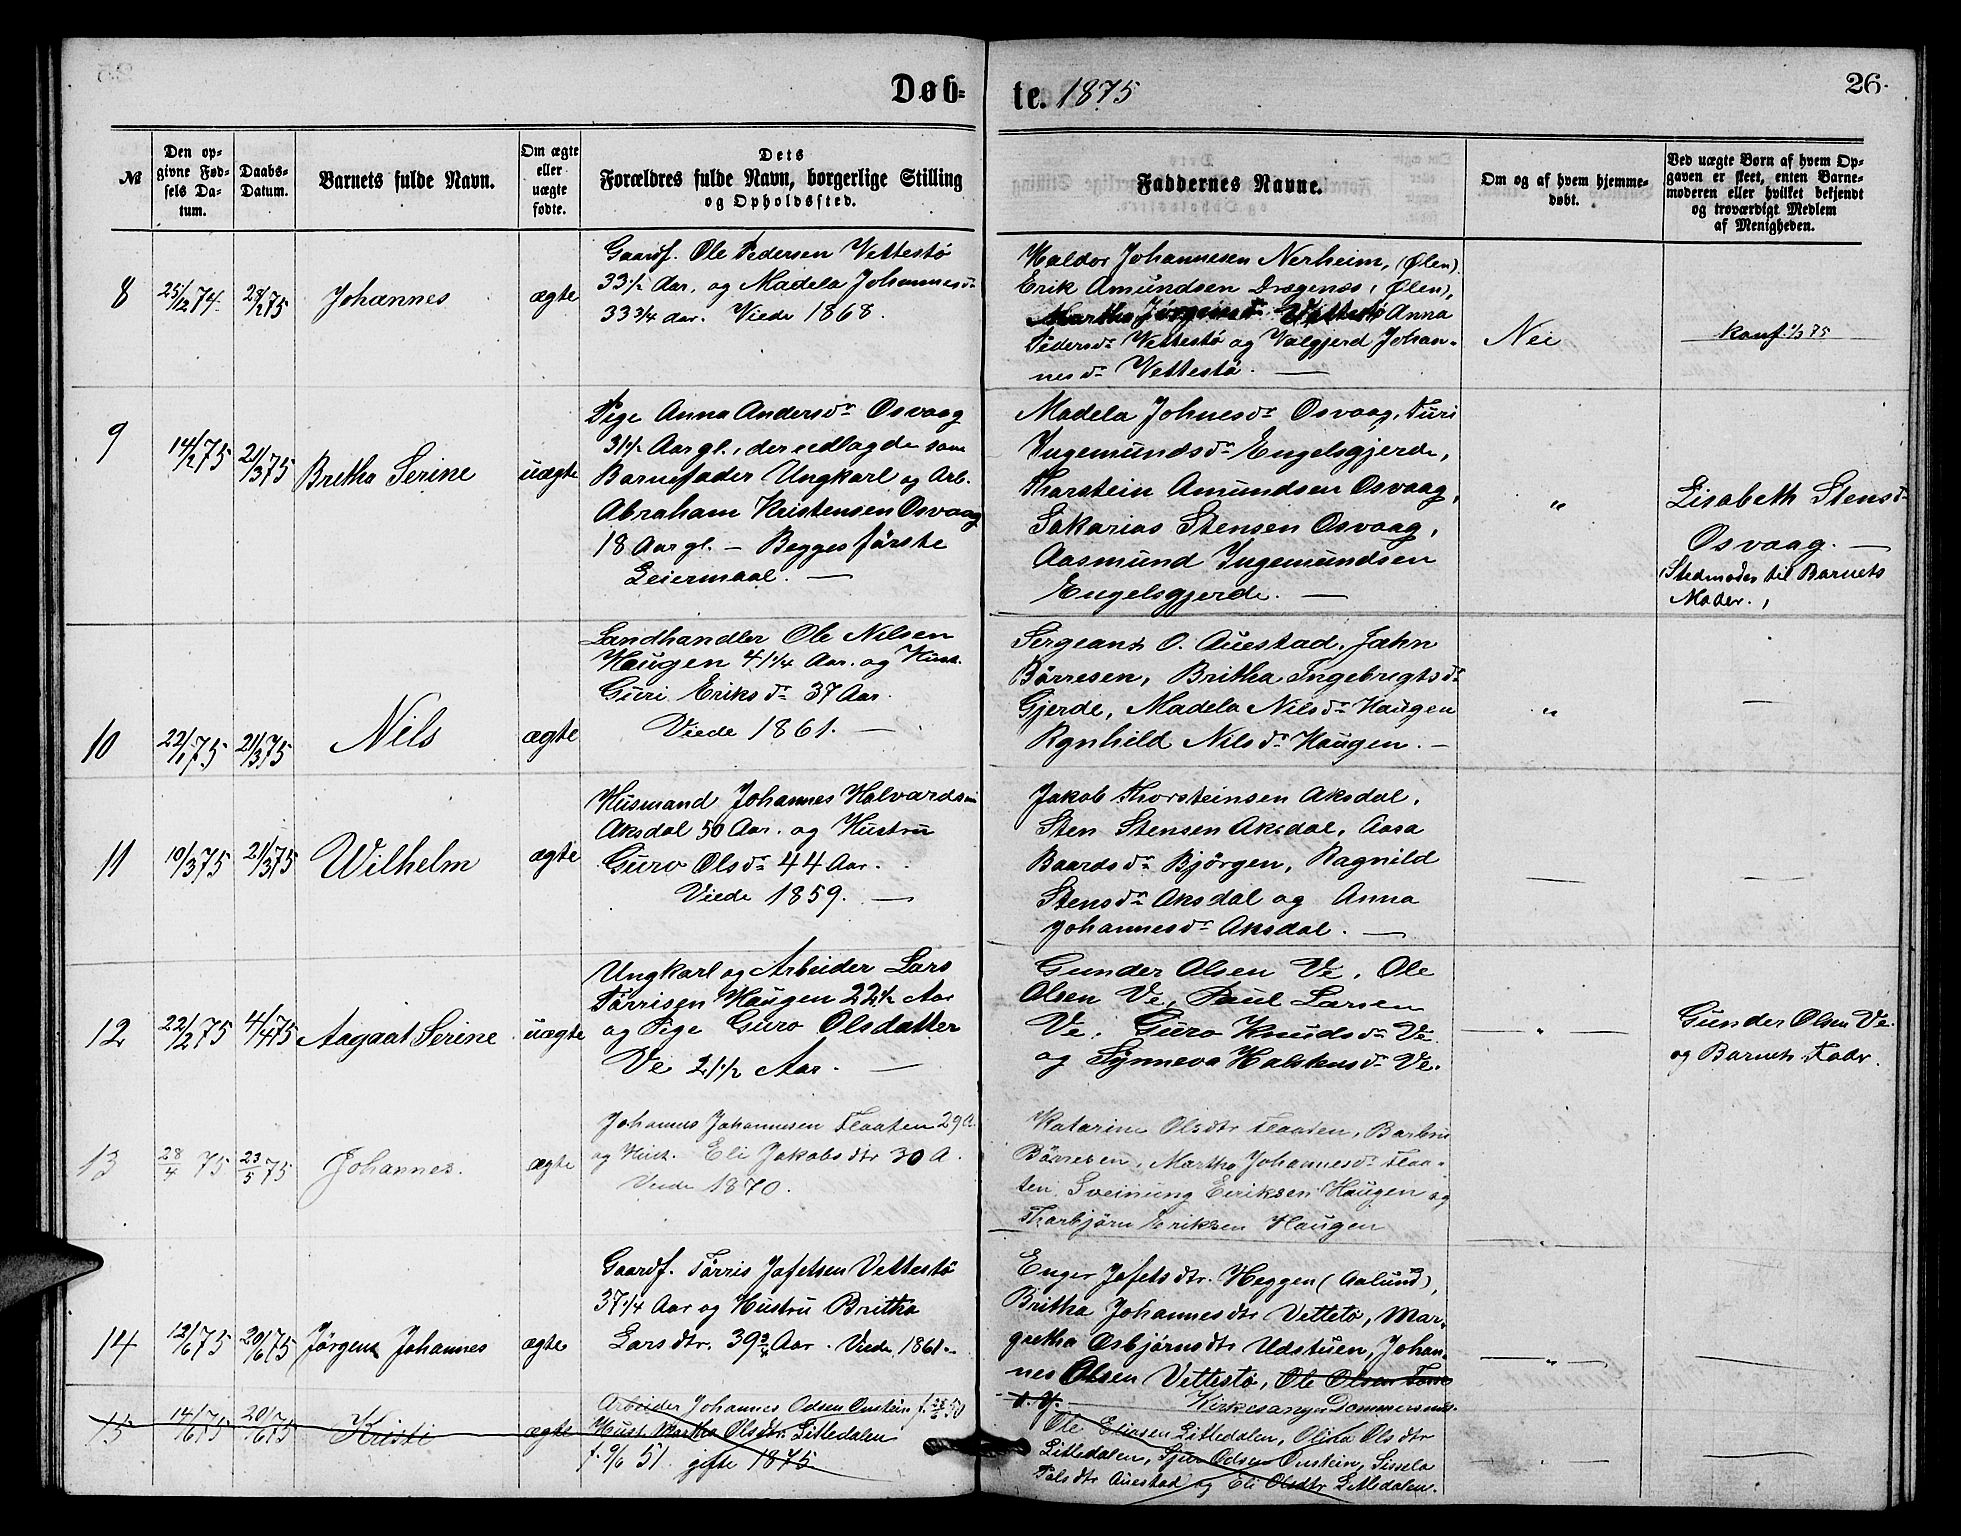 Døb=
te. 1875
26.
№
Den op=
givne Fød=
sels Da=
tum.
Daabs=
Datum.
Barnets fulde Navn.
Om ægte
eller
uægte
fødte.
Dets
Forældres fulde Navn, borgerlige Stilling
og Opholdssted.
Faddernes Navne.
Om og af hvem hjemme=
døbt.
Ved uægte Børn af hvem Op=
gaven er skeet, enten Barne=
moderen eller hvilket bekjendt
og troværdigt Medlem
af Menigheden.
8
25/12 74.
28/2 75
Johannes
ægte
Gaardf. Ole Pedersen Vettestø
33 1/2 Aar. og Madela Johannesdr
33 3/4 Aar. Viede 1868.
Haldor Johannesen Nerheim, (Ølen).
Erik Amundsen Dragenæs, (Ølen),
Martha Jørgensdr Vettestø Anna
Pedersdr Vettestø og Valgjerd Johan-
nesdr Vettestø. —
Nei
Konf 1/3 75
9
14/2 75
21/3 75
Bretha Serine
uægte
Pige Anna Andersdr Osvaag
31 1/2 Aar gl., der udlagde som
Barnefader Ungkarl og Arb.
Abraham Kristensen Osvaag
18 Aar gl. — Begges første
Leiermaal. —
Madela Johnesdr Osvaag, Turi
Ingemundsdr Engelsgjerde,
Thorstein Amundsen Osvaag,
Sakarias Stensen Osvaag,
Aasmund Ingemundsen
Engelsgjerde. —
"
Lisabeth Stensdr
Osvaag. —
Stedmoder til Barnets
Moder.
10
22/1 75
21/3 75
Nils
ægte
Landhandler Ole Nilsen
Haugen 41 1/4 Aar. og Hust.
Guri Eriksdr 37 Aar.
Viede 1861. —
Sergeant O. Auestad, John
Børresen, Britha Ingebregtsdr
Gjerde, Madela Nilsdr Haugen
Rgnhild Nilsdr Haugen. —
"
—
11
10/3 75
21/3 75
Wilhelm
ægte
Husmand Johannes Halvardsen
Aksdal 50 Aar. og Hustru
Guro Olsdr 44 Aar.
Viede 1859. —
Jakob Thorsteinsen Aksdal,
Sten Stensen Aksdal, Aasa
Baardsdr Bjørgen, Ragnild
Stensdr Aksdal og Anna
Johannesdr Aksdal. —
—
—
12
22/2 75
4/4 75
Aagaat Serine
uægte
Ungkarl og Arbeider Lars
Tørrisen Haugen 22 1/2 Aar
og Pige Guro Olsdatter
Ve 21 1/2 Aar. —
Gunder Olsen Ve, Ole
Olsen Ve, Paul Larsen
Ve, Guro Knudsdr Ve
og Synneva Halstensdr Ve.
— " —
Gunder Olsen Ve
og Barnets Fader.
13
28/4 75
23/5 75
Johannes.
ægte
Johannes Johannesen Flaaten 29 A.
og Hust. Eli Jakobsdtr 30 A.
Viede 1870.
Katarine Olsdtr Flaaten, Barbru
Børresen, Martha Johannesdr Flaa-
ten, Sveinung Eeriksen Haugen og
Thorbjørn Eriksen Haugen
"
14
12/6 75
20/6 75
Jørgen Johannes
ægte
Gaardf. Tørris Jafetsen Vettestø
37 1/4 Aar og Hustru Britha
Larsdtr. 39 3/4 Aar. Viede 1861.
Enger Jafetsdtr. Heggen (Aalund),
Britha Johannesdtr Vettetø, Mar-
gretha Osbjørnsdtr Udstuen, Johan-
nes Olsen Vettestø, Ole Olsen
Kirkesanger
— " —
—
15
14/6 75
20/6 75
Kristi
ægte
Arbeider Johannes Odsen Onstein
Hust. Martha Olsdtr. Litledalen
f. 9/6 51. gifte 1875
Ole Eliasen Litledalen, Olina Olsdtr
Litledalen, Sjur Odsen Onstein, Sissela
Palsdtr Auestad og Eli Olsdtr Litledalen.